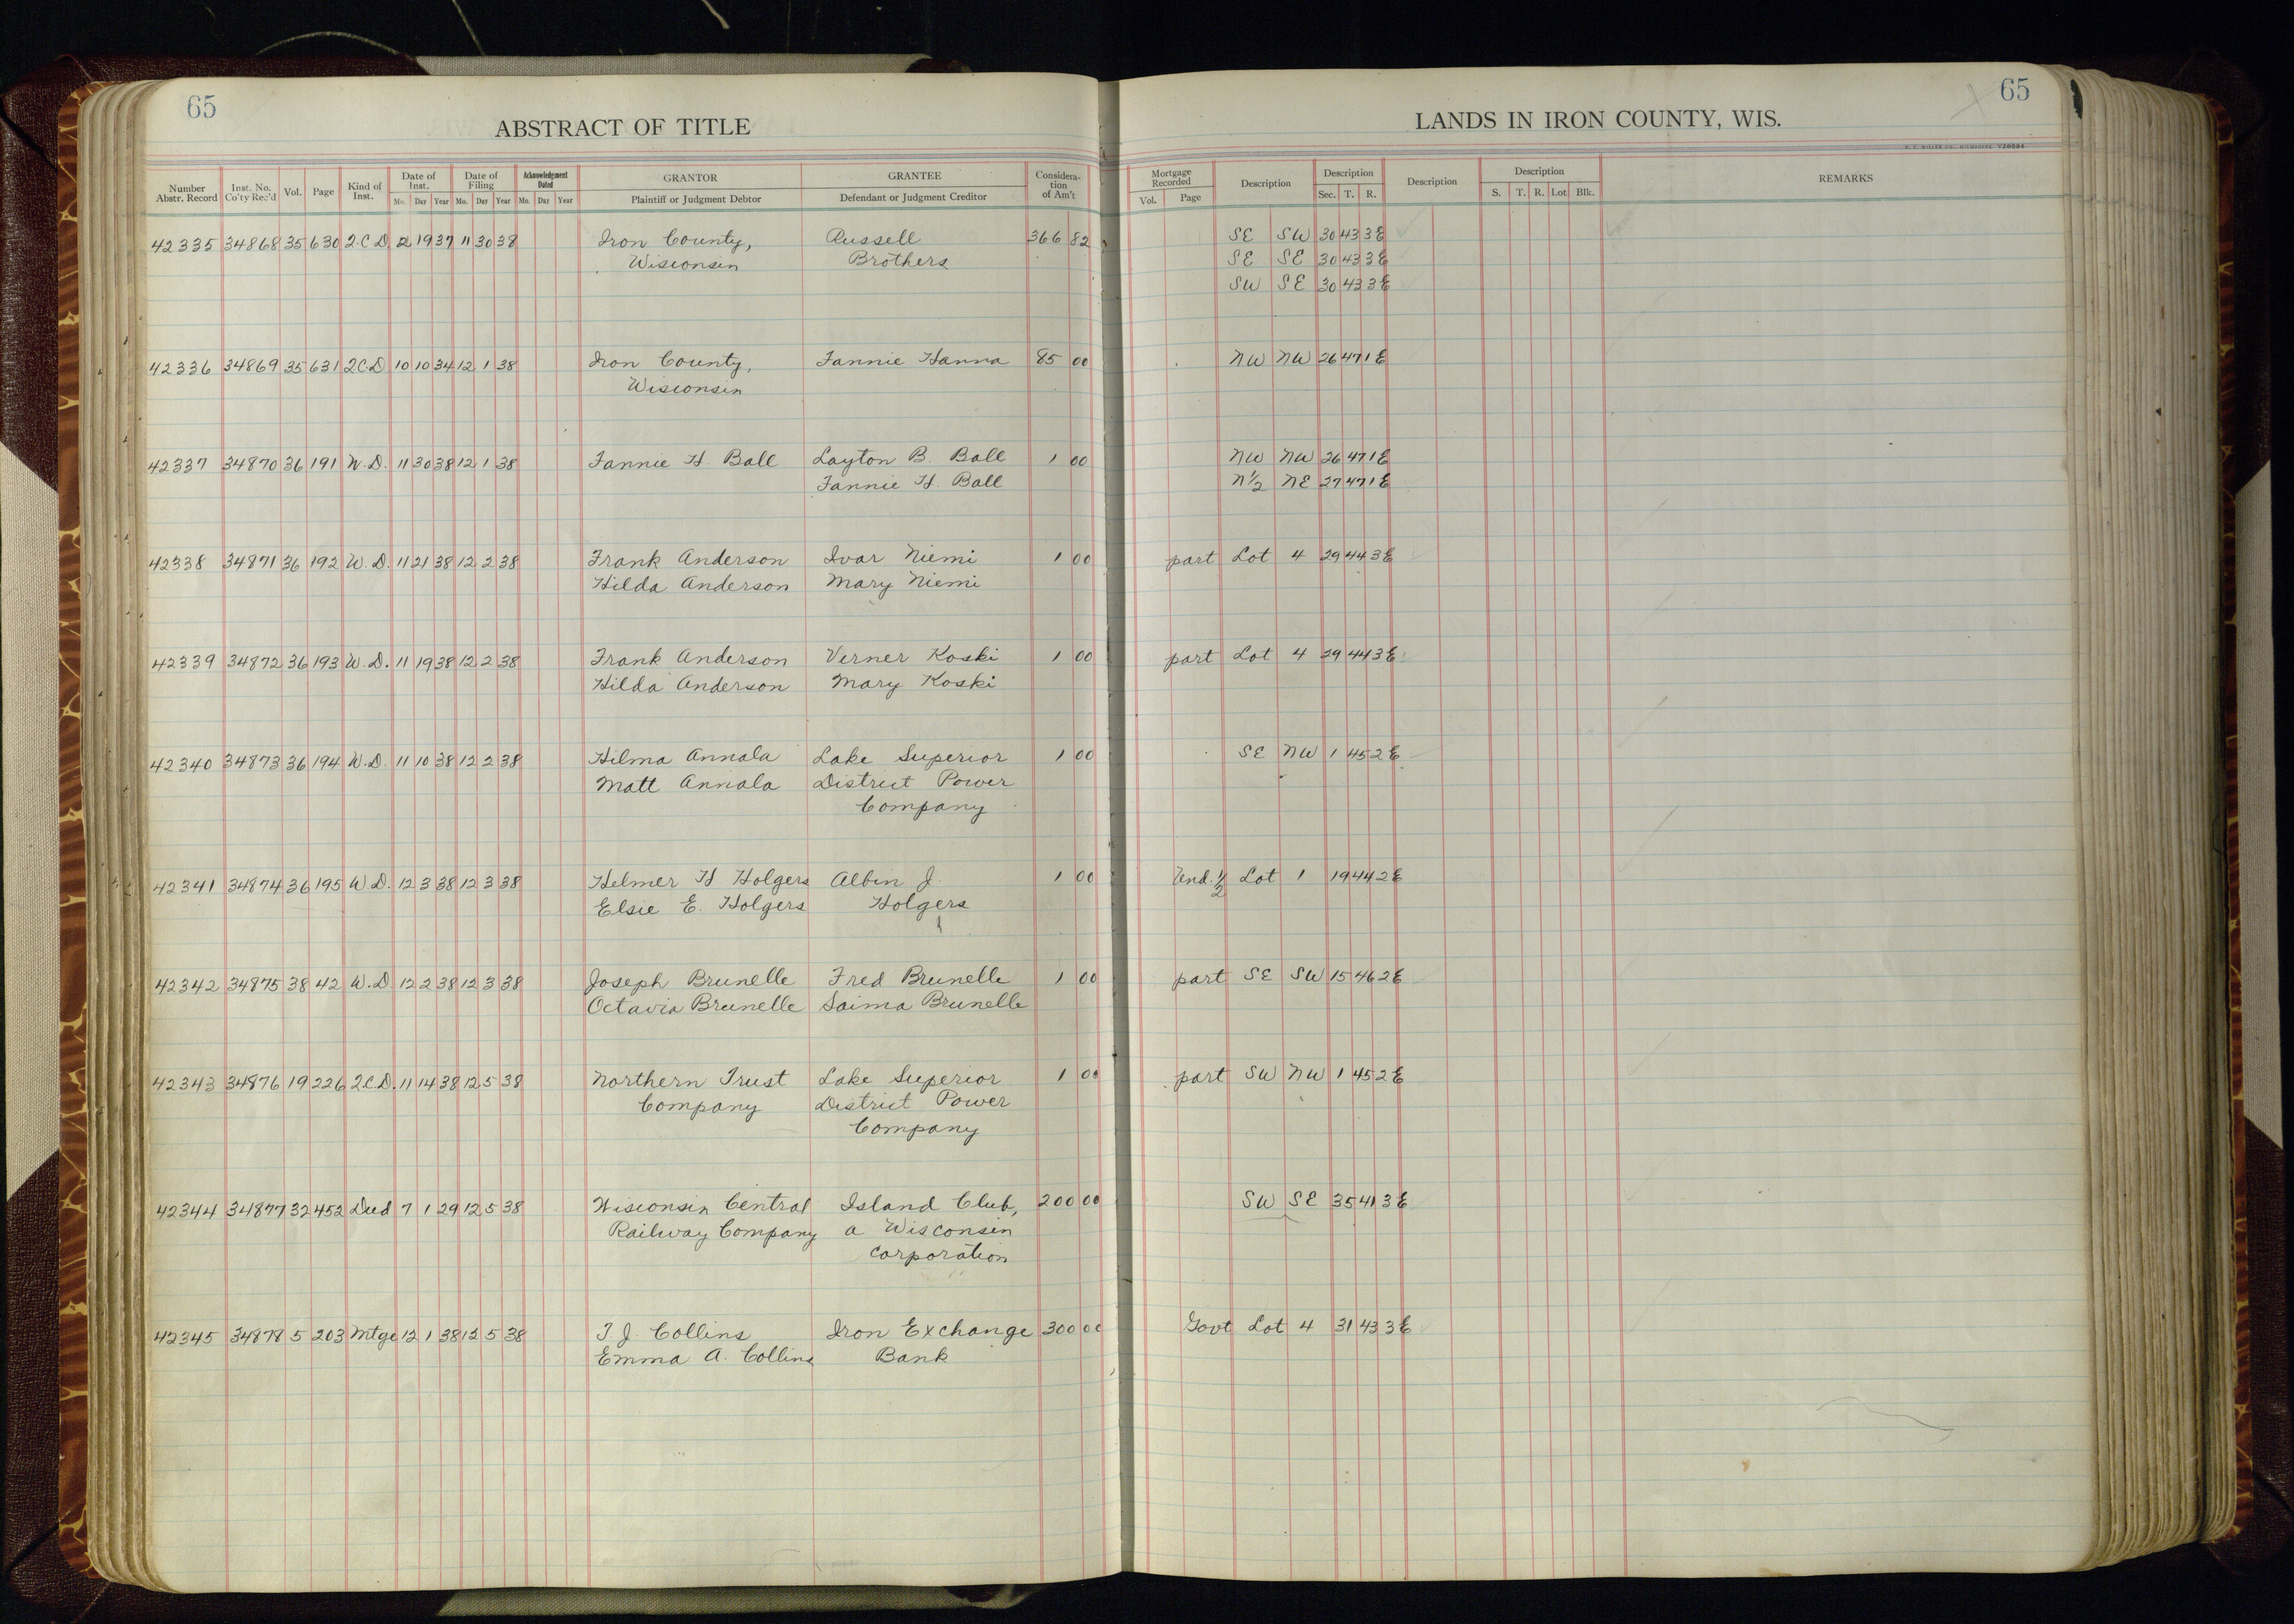 65
ABSTRACT OF TITLE
LANDS IN IRON COUNTY, WIS.
65
Number Abstr. Record | Inst. No. Co'ty Rec'd | Vol. | Page | Kind of Inst. | Date of Inst. Mo. Day Year | Date of Filing Mo. Day Year | Acknowledgment Dated Mo. Day Year | GRANTOR Plaintiff or Judgment Debtor | GRANTEE Defendant or Judgment Creditor | Consideration of Am't | Mortgage Recorded Vol. Page | Description | Description Sec. T. R. | Description | Description S. T. R. Lot Blk. | REMARKS
42335 34868 35 630 Q.C.D. 2 19 37 11 30 38 Iron County, Russell 366 82 SE SW 30 43 3E
Wisconsin Brothers SE SE 30 43 3E
SW SE 30 43 3E
42336 34869 35 631 Q.C.D 10 10 34 12 1 38 Iron County, Fannie Hanna 85 00 NW NW 26 47 1E
Wisconsin
42337 34870 36 191 W.D. 11 30 38 12 1 38 Fannie H. Ball Layton B. Ball 1 00 NW NW 26 47 1E
Fannie H. Ball N½ NE 27 47 1E
42338 34871 36 192 W.D. 11 21 38 12 2 38 Frank Anderson Ivar Niemi 1 00 part Lot 4 29 44 3E
Hilda Anderson Mary Niemi
42339 34872 36 193 W.D. 11 19 38 12 2 38 Frank Anderson Verner Koski 1 00 part Lot 4 29 44 3E
Hilda Anderson Mary Koski
42340 34873 36 194 W.D. 11 10 38 12 2 38 Hilma Annala Lake Superior 1 00 SE NW 1 45 2E
Matt Annala District Power
Company
42341 34874 36 195 W.D. 12 3 38 12 3 38 Helmer H. Holgers Albin J. 1 00 Und. ½ Lot 1 19 44 2E
Elsie E. Holgers Holgers
42342 34875 38 42 W.D. 12 2 38 12 3 38 Joseph Brunelle Fred Brunelle 1 00 part SE SW 15 46 2E
Octavia Brunelle Saima Brunelle
42343 34876 19 226 Q.C.D. 11 14 38 12 5 38 Northern Trust Lake Superior 1 00 part SW NW 1 45 2E
Company District Power
Company
42344 34877 32 452 Deed 7 1 29 12 5 38 Wisconsin Central Island Club, 200 00 SW SE 35 41 3E
Railway Company a Wisconsin
corporation
42345 34878 5 203 Mtge 12 1 38 12 5 38 T. J. Collins Iron Exchange 300 00 Govt Lot 4 31 43 3E
Emma A. Collins Bank